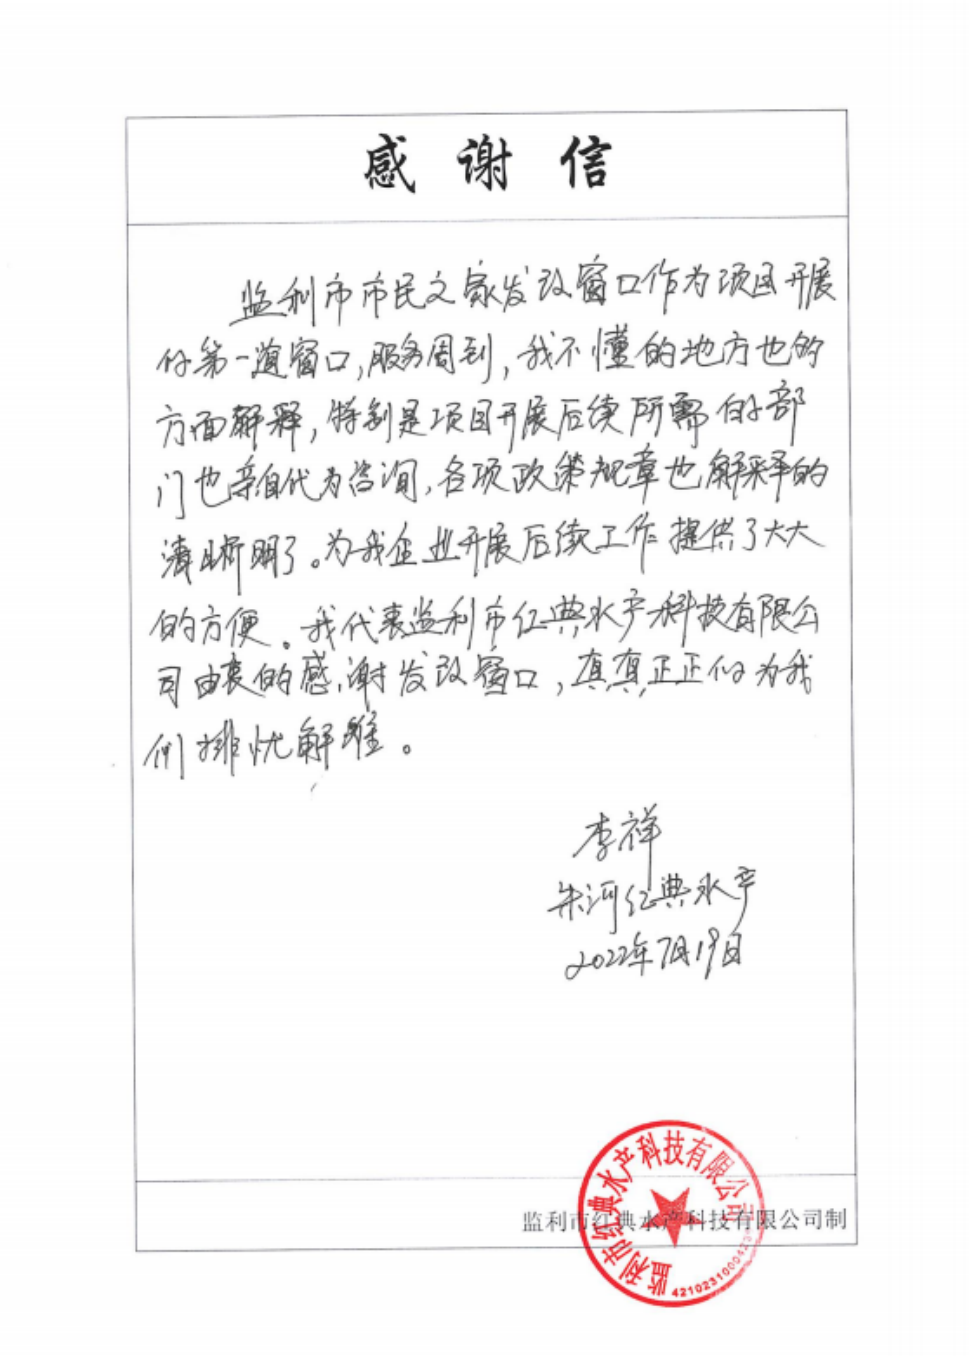 感谢信
监利市市民之家发改窗口作为项目开展
的第一道窗口,服务周到,我不懂的地方也多
方面解释,特别是项目开展后续所需的部
门也亲自代为咨询,各项政策规章也解释的
清晰明了。为我企业开展后续工作提供了大大
的方便。我代表监利市红典水产科技有限公
司由衷的感谢发改窗口,真真正正的为我
们排忧解难。
李祥
朱河红典水产
2022年7月19日
监利市红典水产科技有限公司制
监利市红典水产科技有限公司